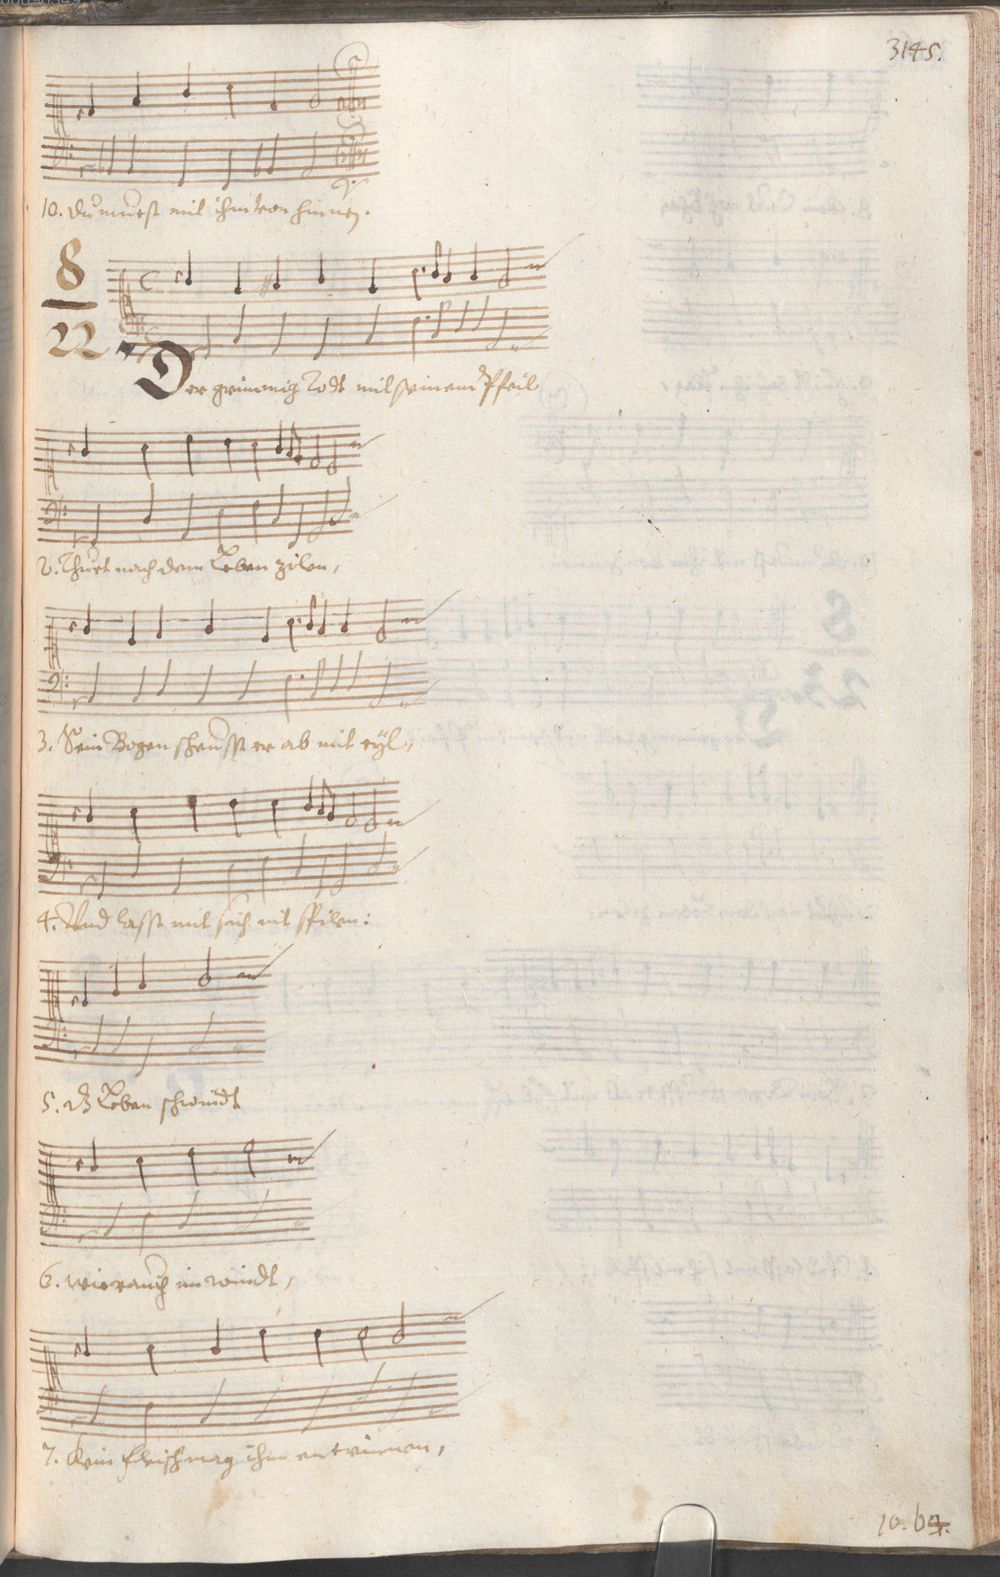 3145.
10. du muest mit ihm von hinnen.
8
22
Der grimmig Todt mit seinem Pfeil
2. Thuet nach dem Leben zilen,
3. Sein Bogen scheusst er ab mit eyl,
4. Und lasst mit sich nit spilen:
5. dz Leben schwindt
6. wie rauch im windt,
7. Kein fleisch mag ihm entrinnen,
10. 64.